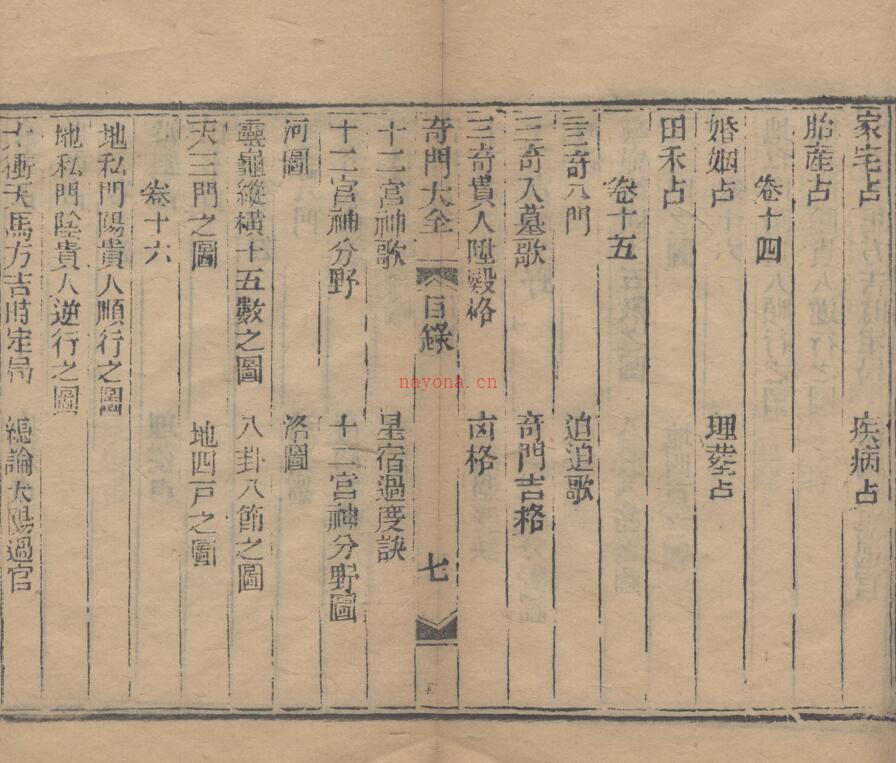 家宅占 疾病占
胎產占
卷十四
婚姻占 理塟占
田禾占
卷十五
三奇八門 迫迫歌
三奇入墓歌 奇門吉格
三奇貴人陞殿格 凶格
奇門大全 目錄 七
十二宮神歌 星宿過度訣
十二宮神分野 十二宮神分野圖
河圖 洛圖
靈龜縱橫十五數之圖 八卦八節之圖
天三門之圖 地四戸之圖
卷十六
地私門陽貴人順行之圖
地私門陰貴人逆行之圖
太衝天馬方吉時定局 總論太陽過宮
nayona.cn